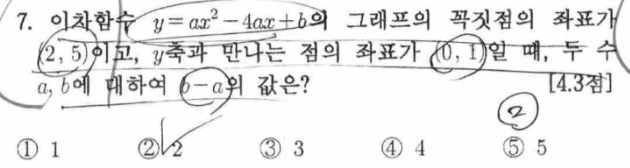 7. 이차함수 y=ax²-4ax+b의 그래프의 꼭짓점의 좌표가
(2, 5)이고, y축과 만나는 점의 좌표가 (0, 1)일 때, 두 수
a, b에 대하여 b-a의 값은? [4.3점]
2
① 1 ② 2 ③ 3 ④ 4 ⑤ 5